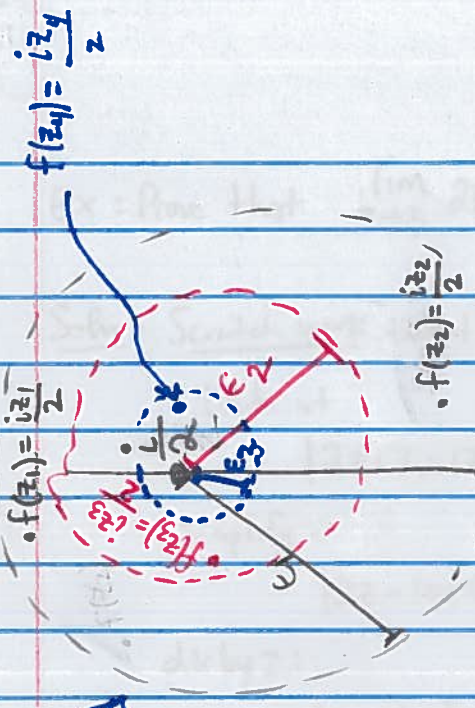 f(z₄) = iz₄/2
f(z₁) = iz₁/2
f(z₂) = iz₂/2
i/2
ε₂
ε₃
f(z₃) = iz₃/2